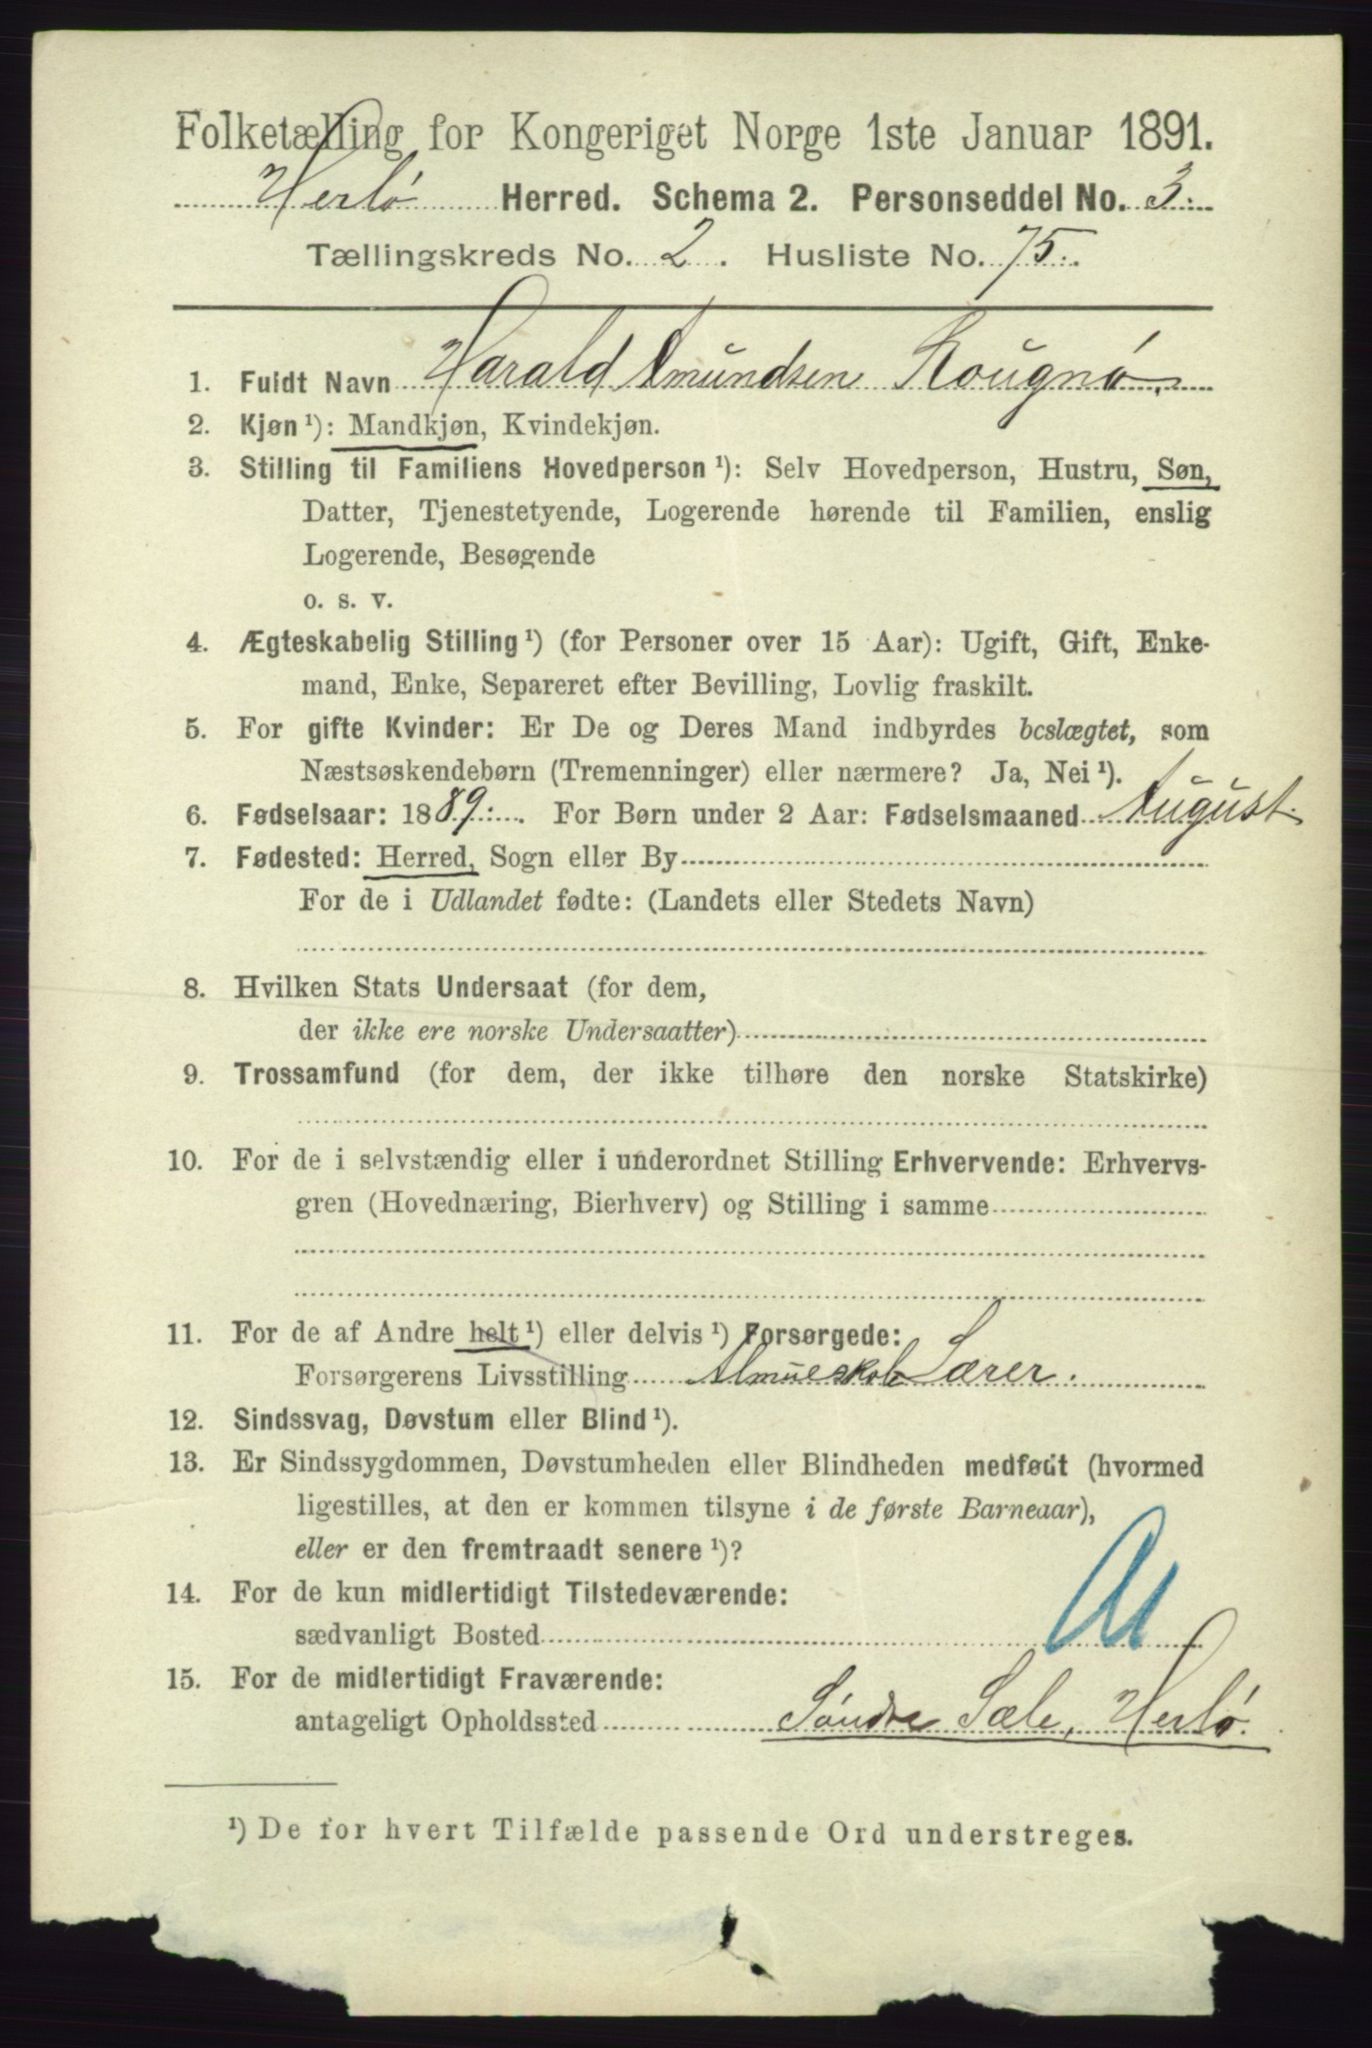 Folketælling for Kongeriget Norge 1ste Januar 1891.
Herlø Herred. Schema 2. Personseddel No. 3.
Tællingskreds No. 2. Husliste No. 75.
1. Fuldt Navn Harald Amundsen Rougnø.
2. Kjøn ¹): Mandkjøn, Kvindekjøn.
3. Stilling til Familiens Hovedperson ¹): Selv Hovedperson, Hustru, Søn,
Datter, Tjenestetyende, Logerende hørende til Familien, enslig
Logerende, Besøgende
o. s. v.
4. Ægteskabelig Stilling ¹) (for Personer over 15 Aar): Ugift, Gift, Enke-
mand, Enke, Separeret efter Bevilling, Lovlig fraskilt.
5. For gifte Kvinder: Er De og Deres Mand indbyrdes beslægtet, som
Næstsøskendebørn (Tremenninger) eller nærmere? Ja, Nei ¹).
6. Fødselsaar: 1889. For Børn under 2 Aar: Fødselsmaaned August.
7. Fødested: Herred, Sogn eller By
For de i Udlandet fødte: (Landets eller Stedets Navn)
8. Hvilken Stats Undersaat (for dem,
der ikke ere norske Undersaatter)
9. Trossamfund (for dem, der ikke tilhøre den norske Statskirke)
10. For de i selvstændig eller i underordnet Stilling Erhvervende: Erhvervs-
gren (Hovednæring, Bierhverv) og Stilling i samme
11. For de af Andre helt ¹) eller delvis ¹) Forsørgede:
Forsørgerens Livsstilling Almueskole Lærer.
12. Sindssvag, Døvstum eller Blind ¹).
13. Er Sindssygdommen, Døvstumheden eller Blindheden medfødt (hvormed
ligestilles, at den er kommen tilsyne i de første Barneaar),
eller er den fremtraadt senere ¹)?
14. For de kun midlertidigt Tilstedeværende:
sædvanligt Bosted
15. For de midlertidigt Fraværende:
antageligt Opholdssted Søndre Sæle, Herlø.
¹) De for hvert Tilfælde passende Ord understreges.